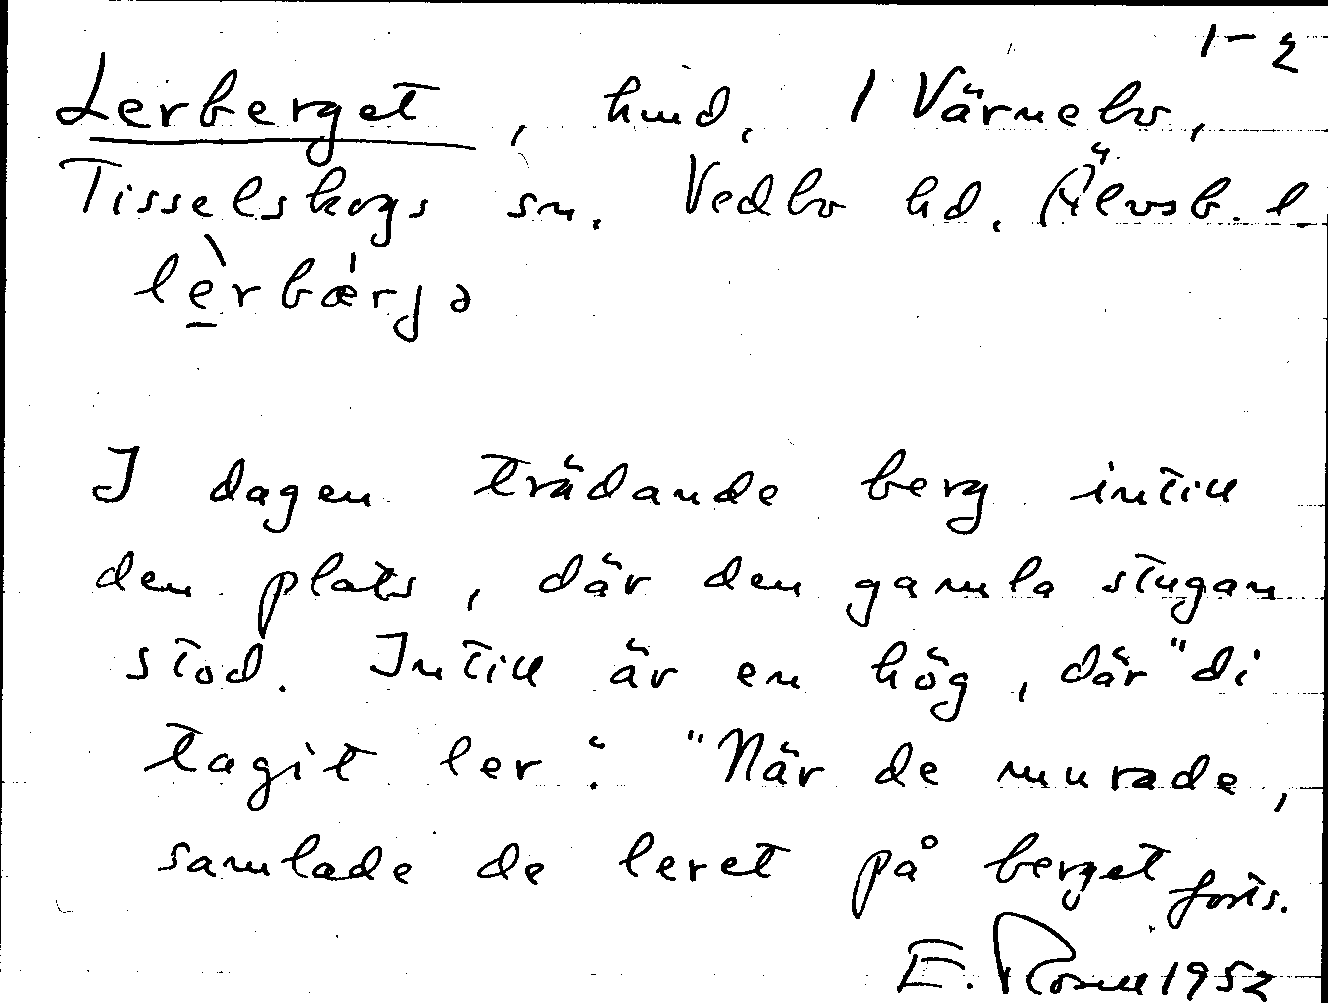 1-2
Lerberget, hmd. 1 Värnebo,
Tisselskogs sn. Vedbo hd. Älvsb. l.
lè̱rbæ̀rjə
I dagen trädande berg intill
den plats, där den gamla stugan
stod. Intill är en hög, där "di
tagit ler". "När de murade,
samlade de leret på berget forts.
E. Rosell 1952